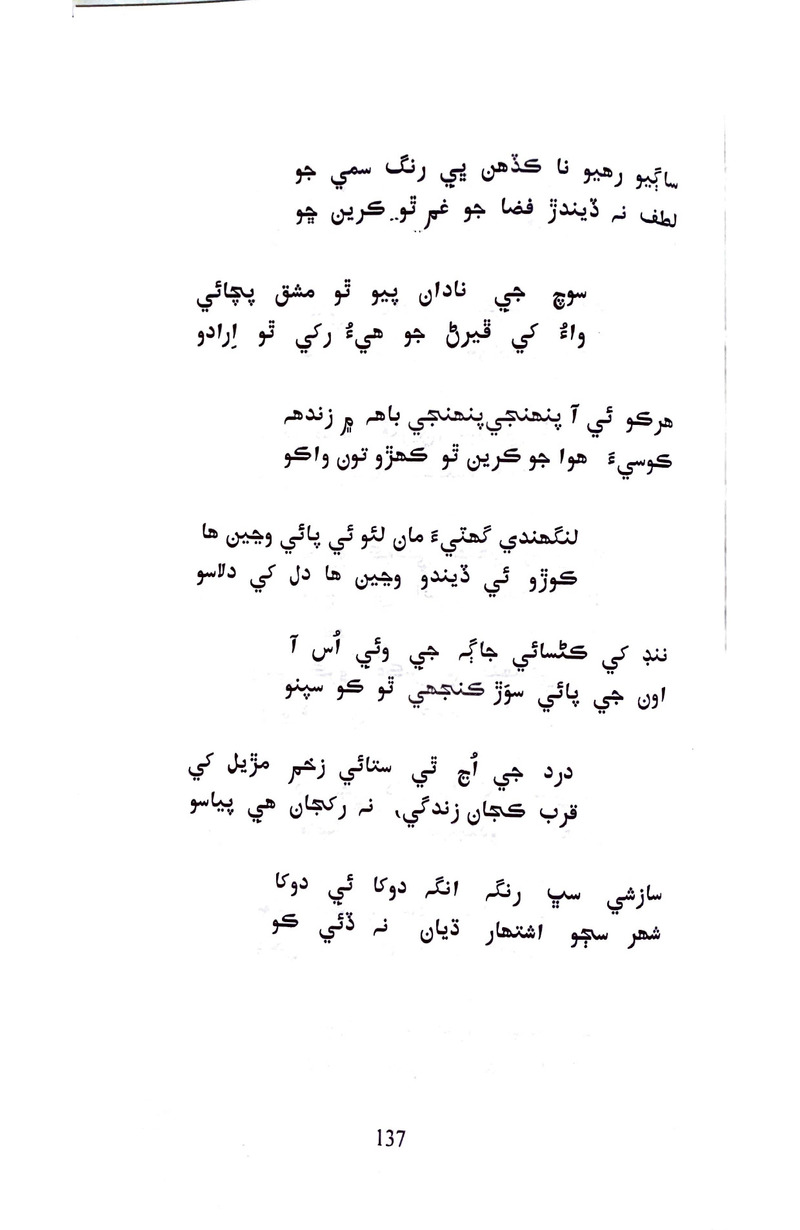 ساڳيو رهيو نا ڪڏهن ڀي رنگ سمي جو
لطف نہ ڏيندڙ فضا جو غم ٿو ڪرين ڇو
سوچ جي نادان پيو ٿو مشق پچائي
واءُ کي ڦيرڻ جو هيءُ رکي ٿو اِرادو
هرڪو ئي آ پنهنجي پنهنجي باهہ ۾ زندهہ
ڪوسيءَ هوا جو ڪرين ٿو ڪهڙو تون واڪو
لنگهندي گهٽيءَ مان لئو ئي پائي وڃين ها
ڪوڙو ئي ڏيندو وڃين ها دل کي دلاسو
ننڊ کي ڪڻسائي جاڳہ جي وئي اُس آ
اون جي پائي سوَڙ ڪنجهي ٿو ڪو سپنو
درد جي اُڃ ٿي ستائي زخم مڙيل کي
قرب ڪجان زندگي، نہ رکجان هي پياسو
سازشي سڀ رنگہ انگہ دوکا ئي دوکا
شهر سڄو اشتهار ڌيان نہ ڏئي ڪو
137